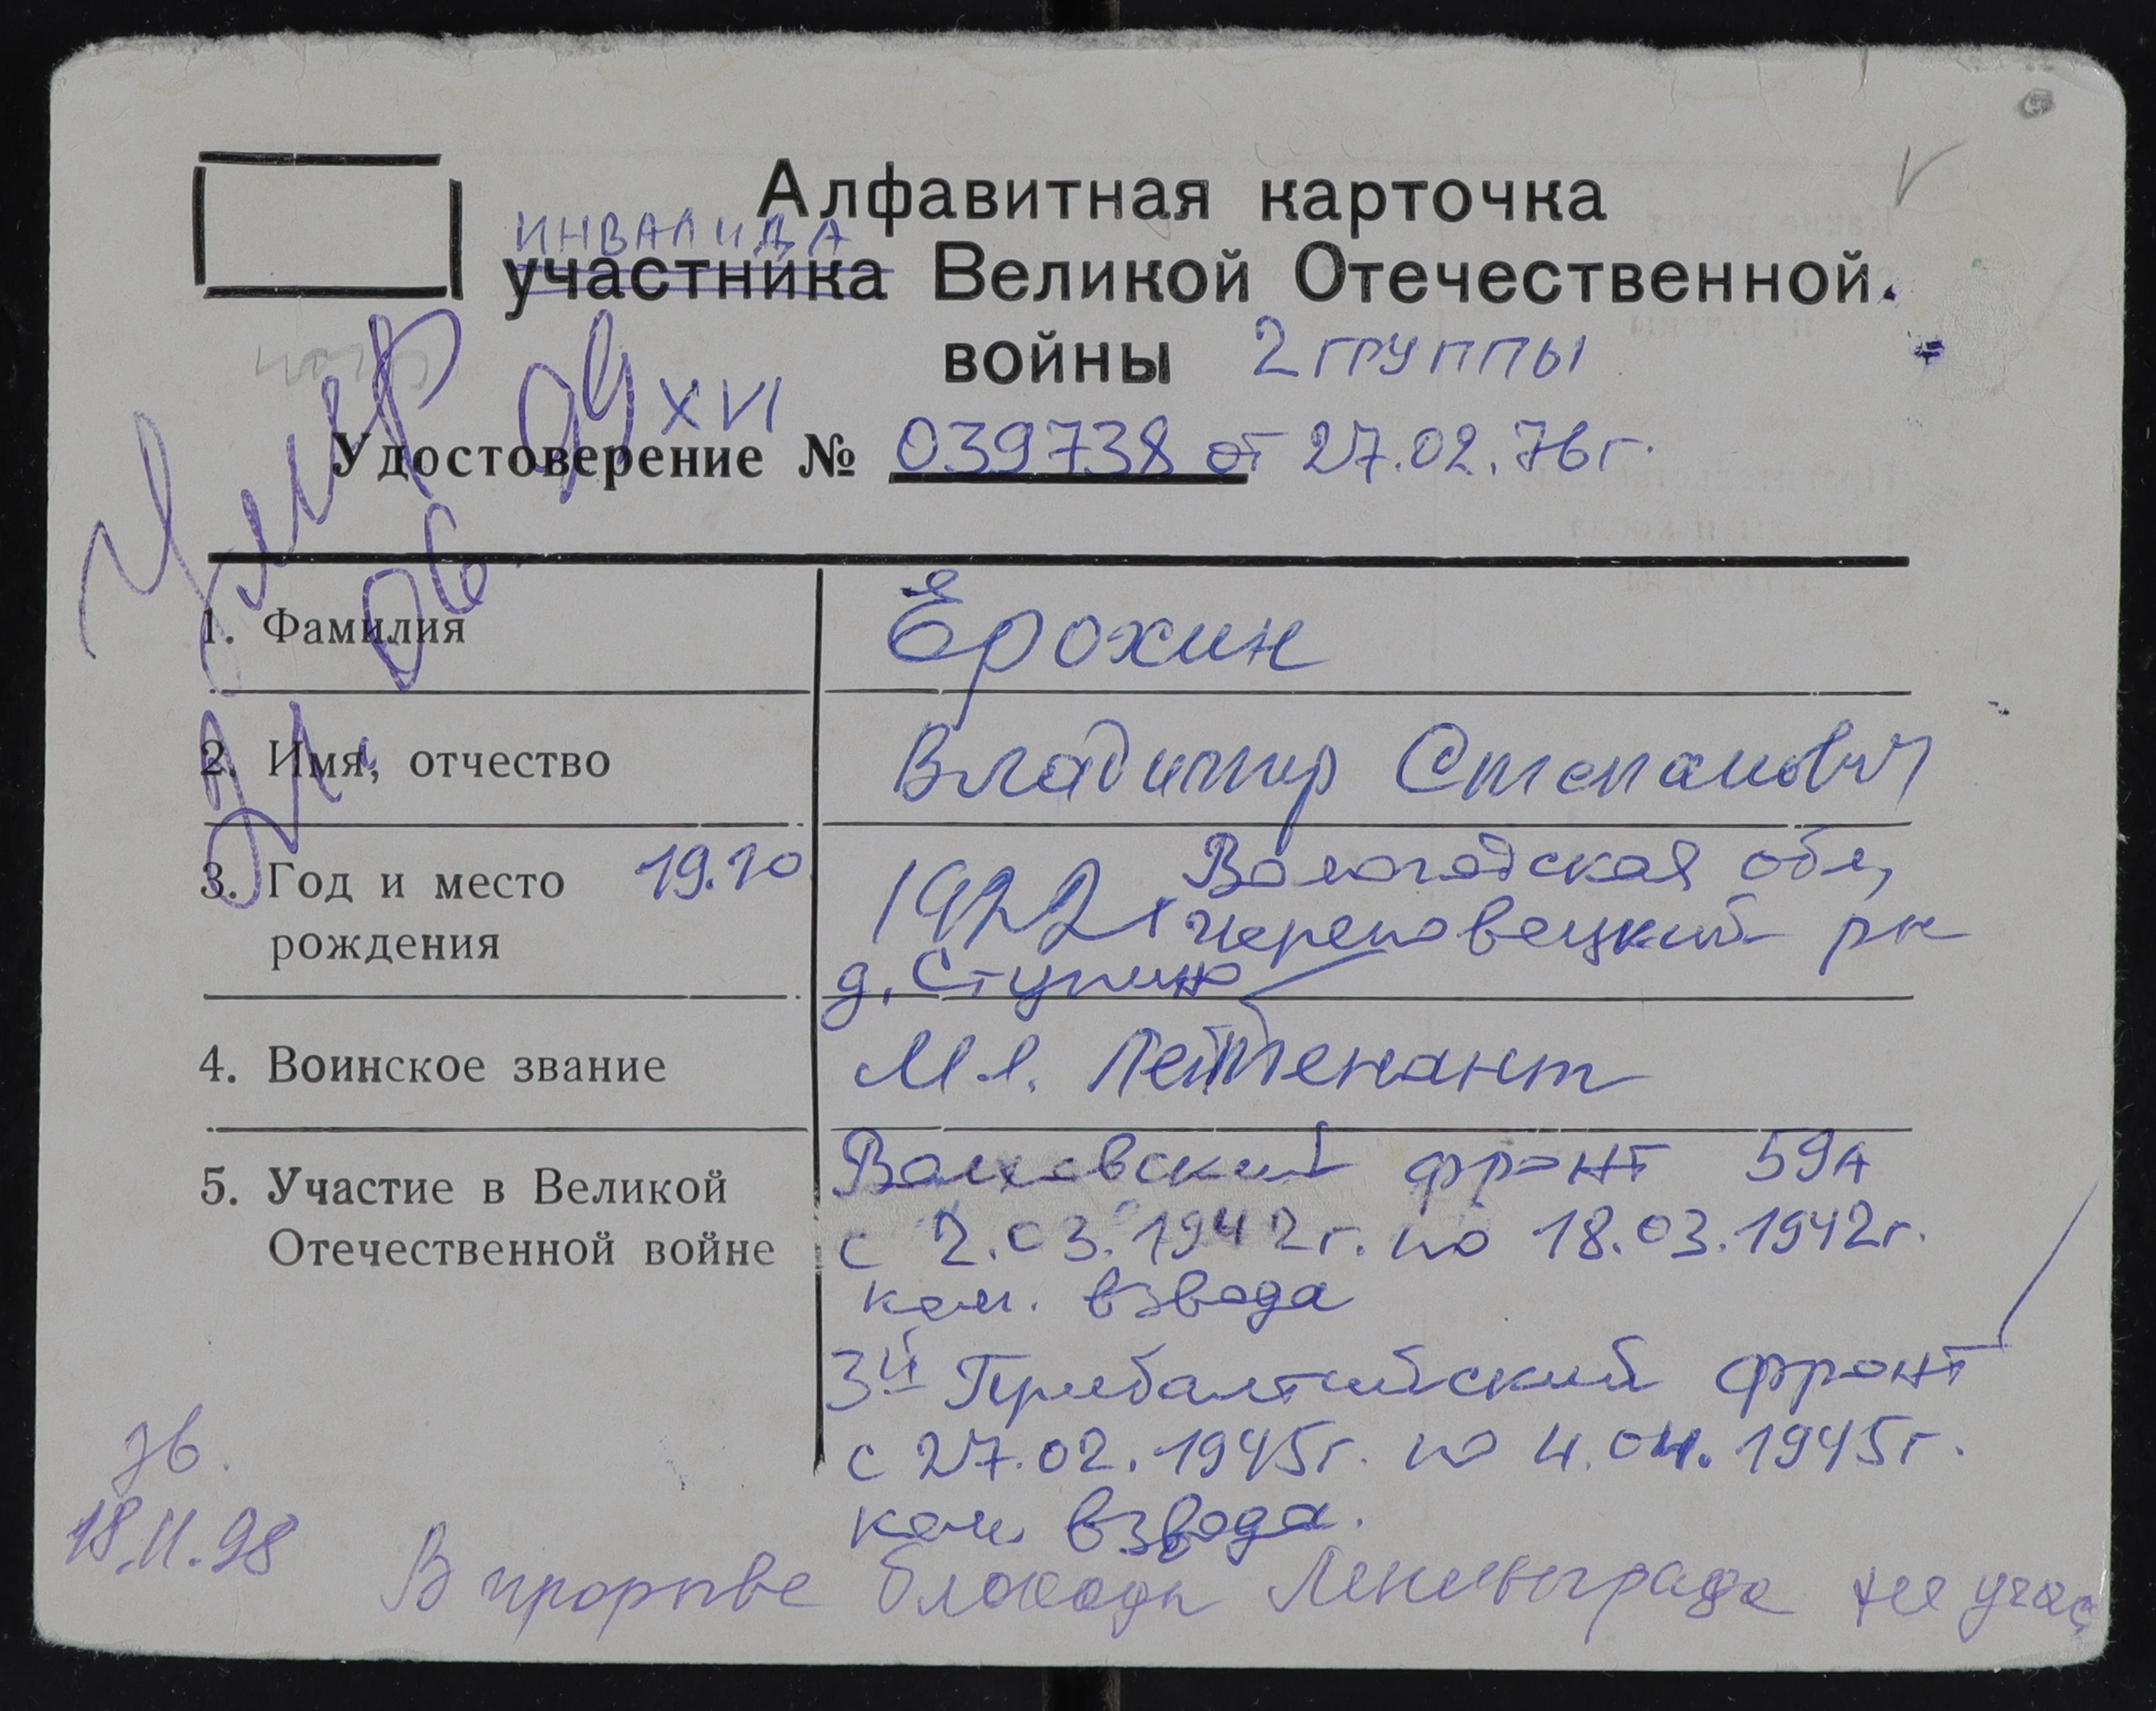 Алфавитная карточка
ИНВАЛИДА
участника Великой Отечественной
войны 2 ГРУППЫ
XVI
Удостоверение № 039738 от 27.02.76 г.
Умер
06
1. Фамилия Ерохин
2. Имя, отчество Владимир Степанович
3. Год и место 19.10 1922г Вологодская обл,
рождения Череповецкий рн
д. Ступино
4. Воинское звание Мл. лейтенант
5. Участие в Великой Волховский фронт 59А
Отечественной войне с 2.03.1942г. по 18.03.1942г.
ком. взвода
3й Прибалтийский фронт
с 27.02.1945г. по 4.04.1945г.
ком. взвода.
18.11.98
В прорыве блокады Ленинграда не учас